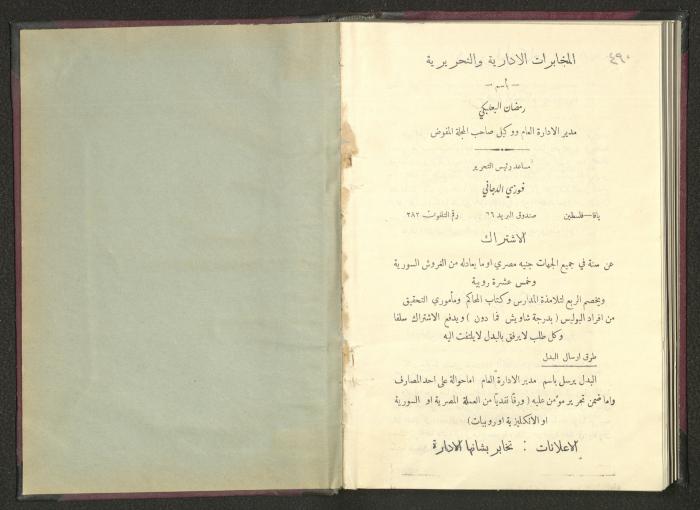 ٤٩٠
المخابرات الادارية والتحريرية
— باسم —
رمضان البعلبكي
مدير الادارة العام ووكيل صاحب المجلة المفوض
مساعد رئيس التحرير
فوزي الدجاني
يافا — فلسطين صندوق البريد ٦٦ رقم التلفون ٢٨٢
الاشتراك
عن سنة في جميع الجهات جنيه مصري او ما يعادله من القروش السورية
وخمس عشرة روبية
ويخصم الربع لتلامذة المدارس وكتاب المحاكم ومأموري التحقيق
من افراد البوليس ( بدرجة شاويش فما دون ) ويدفع الاشتراك سلفا
وكل طلب لا يرفق بالبدل لا يلتفت اليه
طرق ارسال البدل
البدل يرسل باسم مدير الادارة العام اما حوالة على احد المصارف
واما ضمن تحرير مؤمن عليه ( ورقا نقديا من العملة المصرية او السورية
او الانكليزية او روبيات )
الاعلانات : تخابر بشانها الادارة